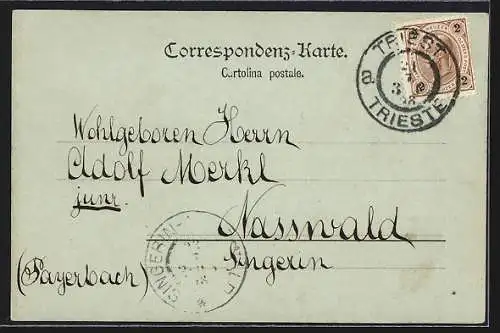 Correspondenz-Karte.
Cartolina postale.
TRIEST
TRIESTE
2 2
Wohlgeboren Herrn
Adolf Merkl
junr.
Nasswald
Singerin
(Payerbach)
SINGERIN